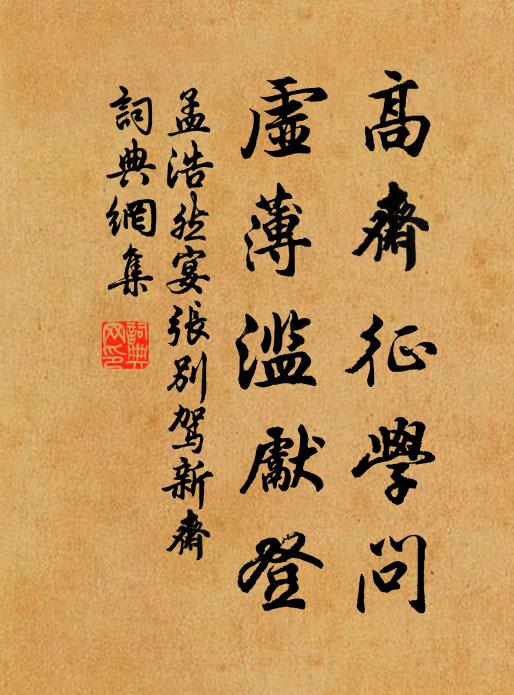 高齋征學問
虛薄滥獻登
孟浩然宴張別駕新齋
詞典網集
詞典网印